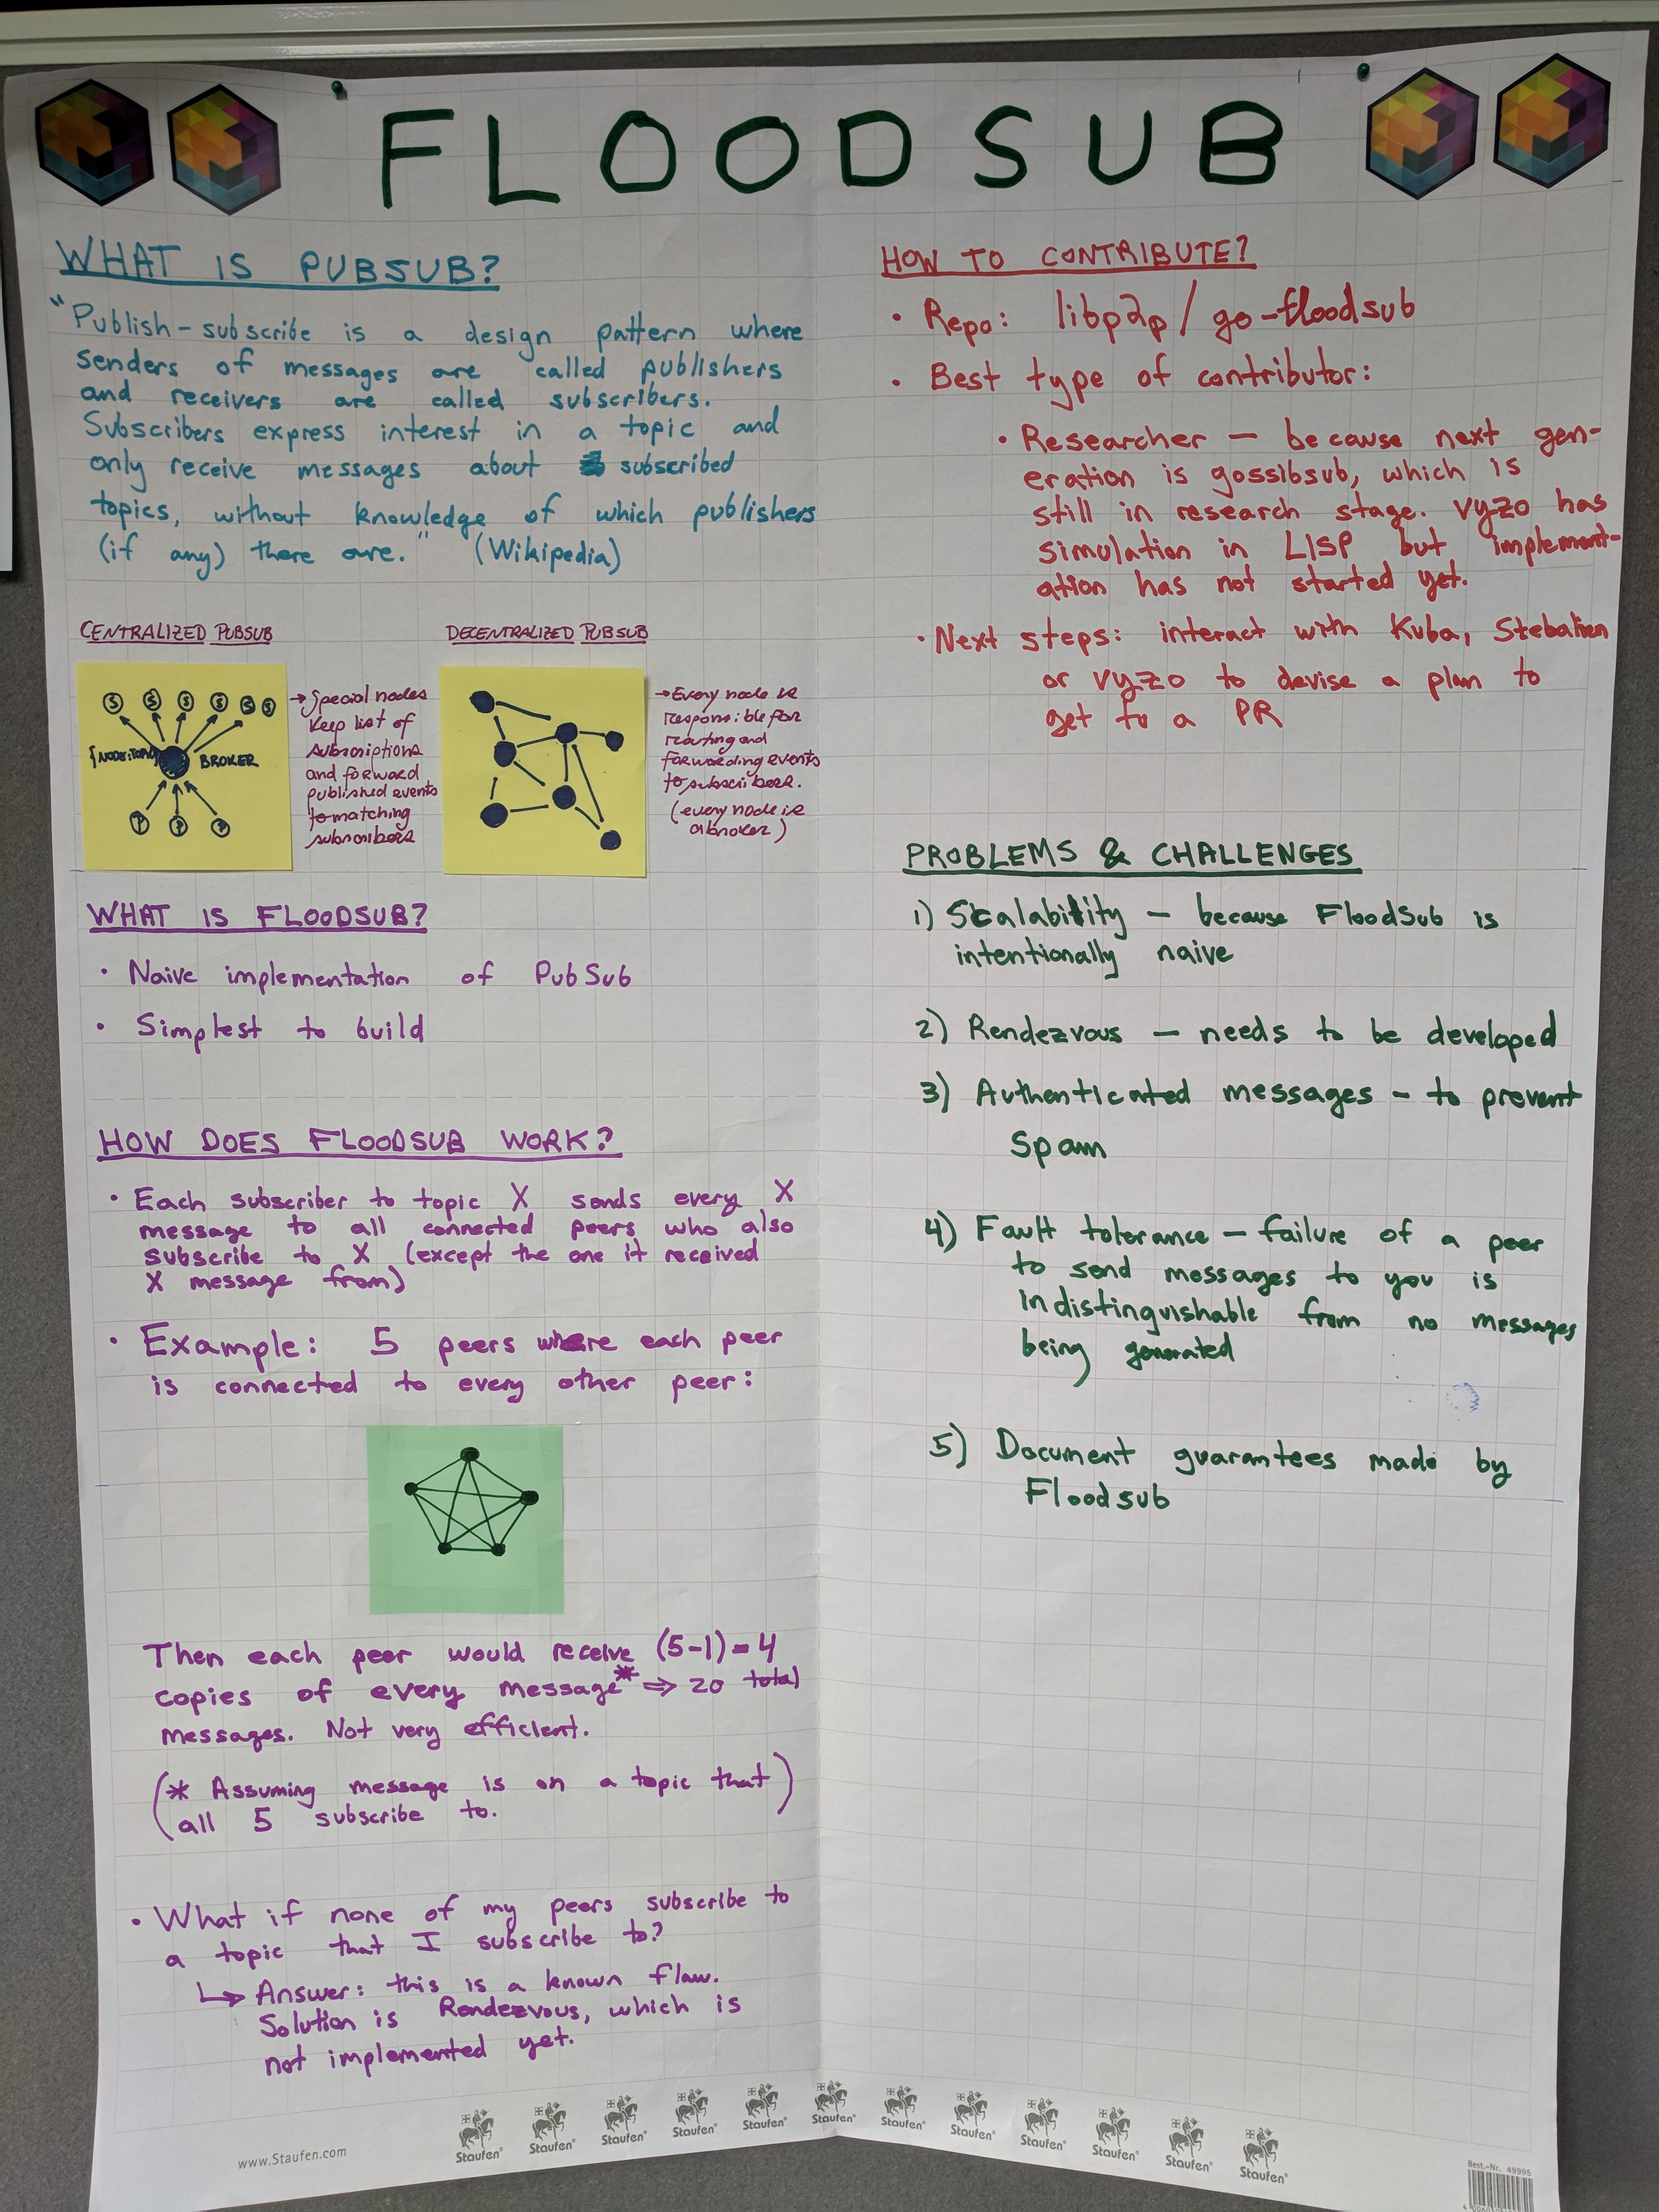 FLOODSUB
WHAT IS PUBSUB?
"Publish-subscribe is a design pattern where
senders of messages are called publishers
and receivers are called subscribers.
Subscribers express interest in a topic and
only receive messages about subscribed
topics, without knowledge of which publishers
(if any) there are." (Wikipedia)
CENTRALIZED PUBSUB
S S S S S S
{NODE:TOPIC
BROKER
P P P
→ Special nodes
keep list of
subscriptions
and forward
published events
to matching
subscribers
DECENTRALIZED PUBSUB
→ Every node is
responsible for
routing and
forwarding events
to subscribers.
(every node is
a broker)
WHAT IS FLOODSUB?
• Naive implementation of PubSub
• Simplest to build
HOW DOES FLOODSUB WORK?
• Each subscriber to topic X sends every X
message to all connected peers who also
subscribe to X (except the one it received
X message from)
• Example: 5 peers where each peer
is connected to every other peer:
Then each peer would receive (5-1)=4
copies of every message* ⇒ 20 total
messages. Not very efficient.
(* Assuming message is on a topic that
all 5 subscribe to.)
• What if none of my peers subscribe to
a topic that I subscribe to?
↳ Answer: this is a known flaw.
Solution is Rendezvous, which is
not implemented yet.
HOW TO CONTRIBUTE?
• Repo: libp2p/go-floodsub
• Best type of contributor:
• Researcher — because next gen-
eration is gossibsub, which is
still in research stage. vyzo has
simulation in LISP but implement-
ation has not started yet.
• Next steps: interact with Kuba, Stebalien
or vyzo to devise a plan to
get to a PR
PROBLEMS & CHALLENGES
1) Scalability — because FloodSub is
intentionally naive
2) Rendezvous — needs to be developed
3) Authenticated messages - to prevent
spam
4) Fault tolerance — failure of a peer
to send messages to you is
indistinguishable from no messages
being generated
5) Document guarantees made by
Floodsub
www.Staufen.com
Staufen® Staufen® Staufen® Staufen® Staufen® Staufen® Staufen® Staufen® Staufen® Staufen® Staufen® Staufen®
Best.-Nr. 49995